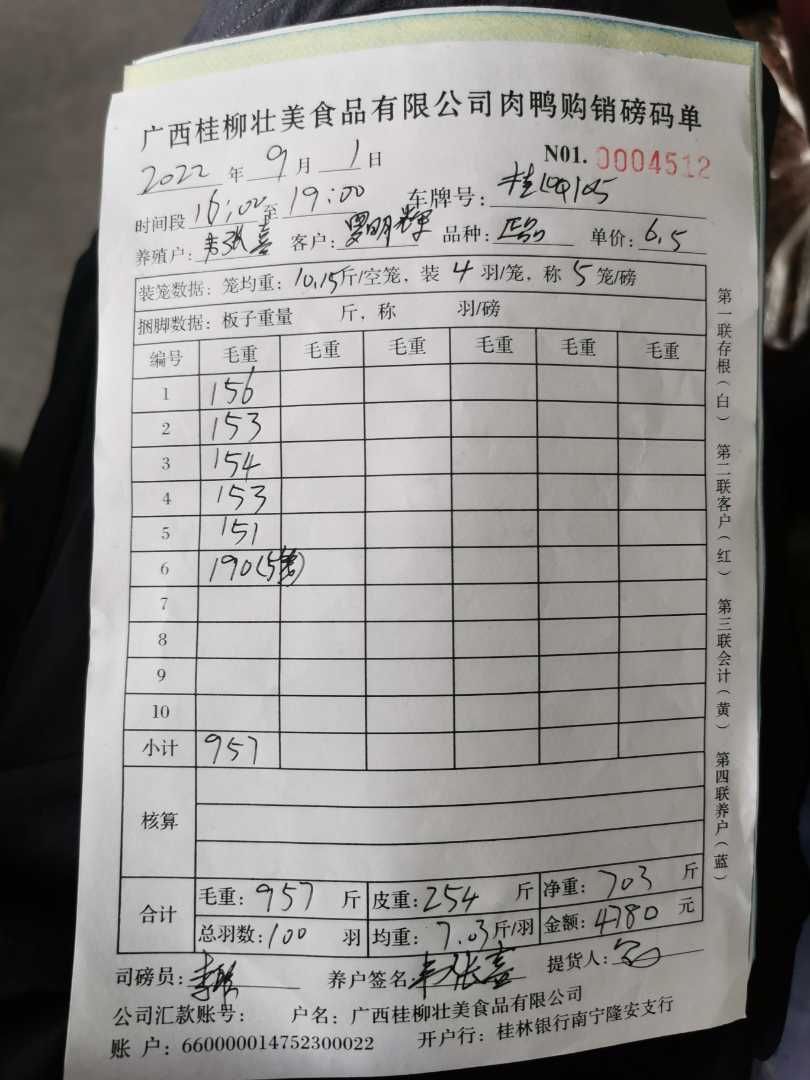 广西桂柳壮美食品有限公司肉鸭购销磅码单
2022 年 9 月 1 日 N01. 0004512
时间段 16:00 至 19:00 车牌号:
养殖户: 张喜 客户: 罗明辉 品种: 正品 单价: 6.5
装笼数据: 笼均重: 10.15斤/空笼, 装 4 羽/笼, 称 5 笼/磅
捆脚数据: 板子重量 斤, 称 羽/磅
编号 毛重 毛重 毛重 毛重 毛重 毛重
1 156
2 153
3 154
4 153
5 151
6 190(5
7
8
9
10
小计 957
核算
合计 毛重: 957 斤 皮重: 254 斤 净重: 703 斤
总羽数: 100 羽 均重: 7.03斤/羽 金额: 4780 元
司磅员: 养户签名 张喜 提货人:
公司汇款账号: 户名: 广西桂柳壮美食品有限公司
账 户: 660000014752300022 开户行: 桂林银行南宁隆安支行
第一联存根(白) 第二联客户(红) 第三联会计(黄) 第四联养户(蓝)